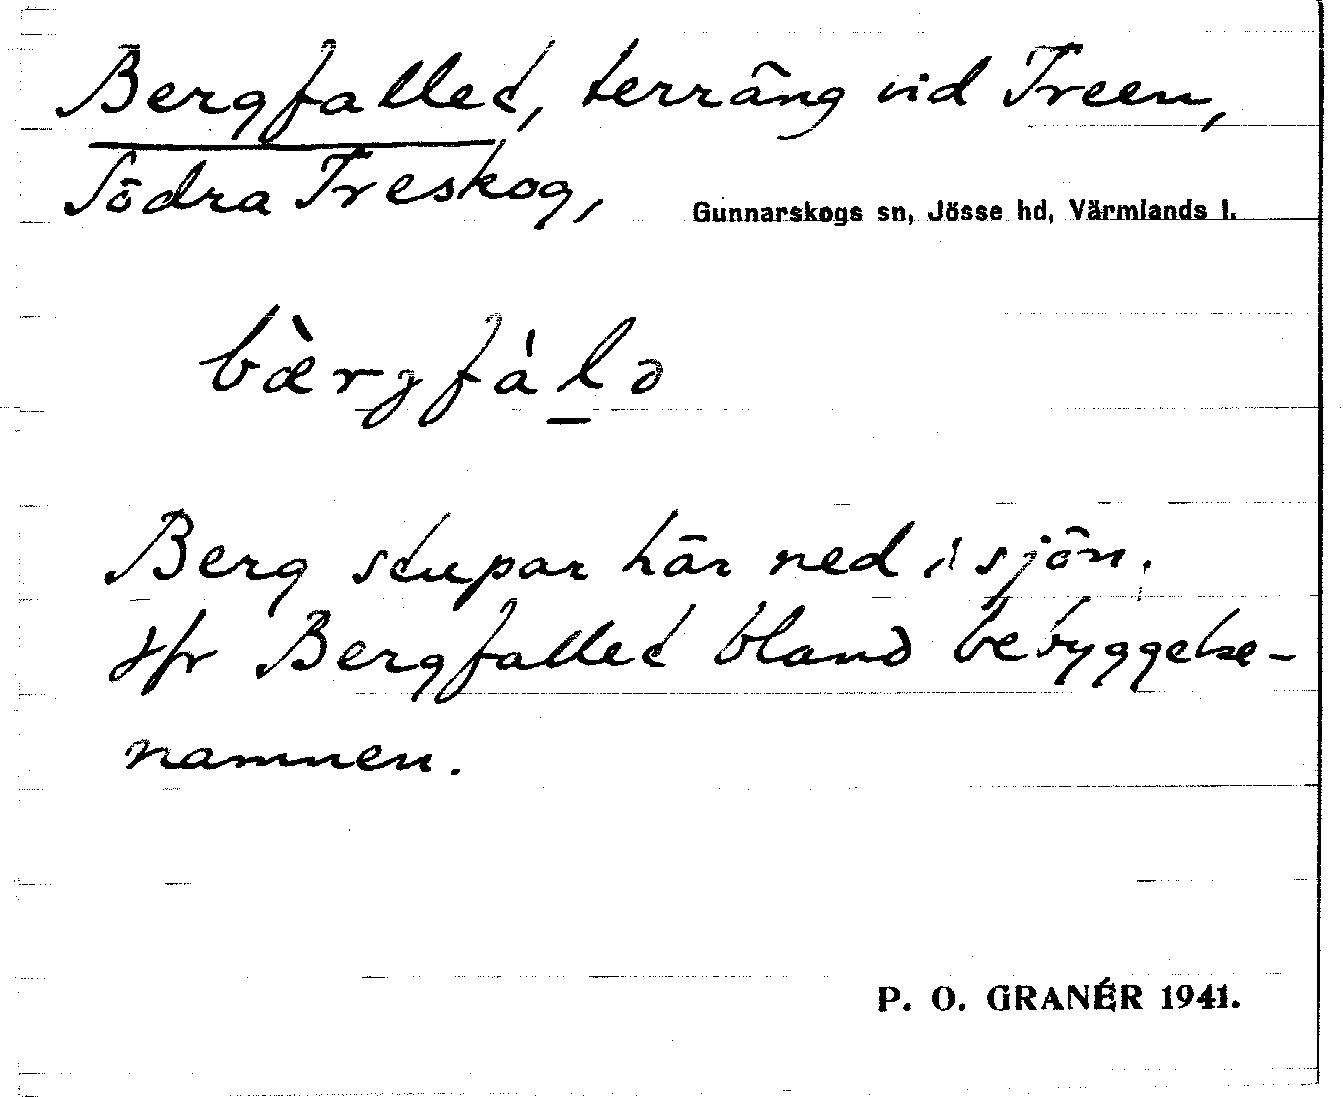 Bergfallet, terräng vid Treen,
Södra Treskog, Gunnarskogs sn, Jösse hd, Värmlands l.
bæ̀rgfàl̲ə
Berg stupar här ned i sjön.
Jfr Bergfallet bland bebyggelse-
namnen.
P. O. GRANÉR 1941.